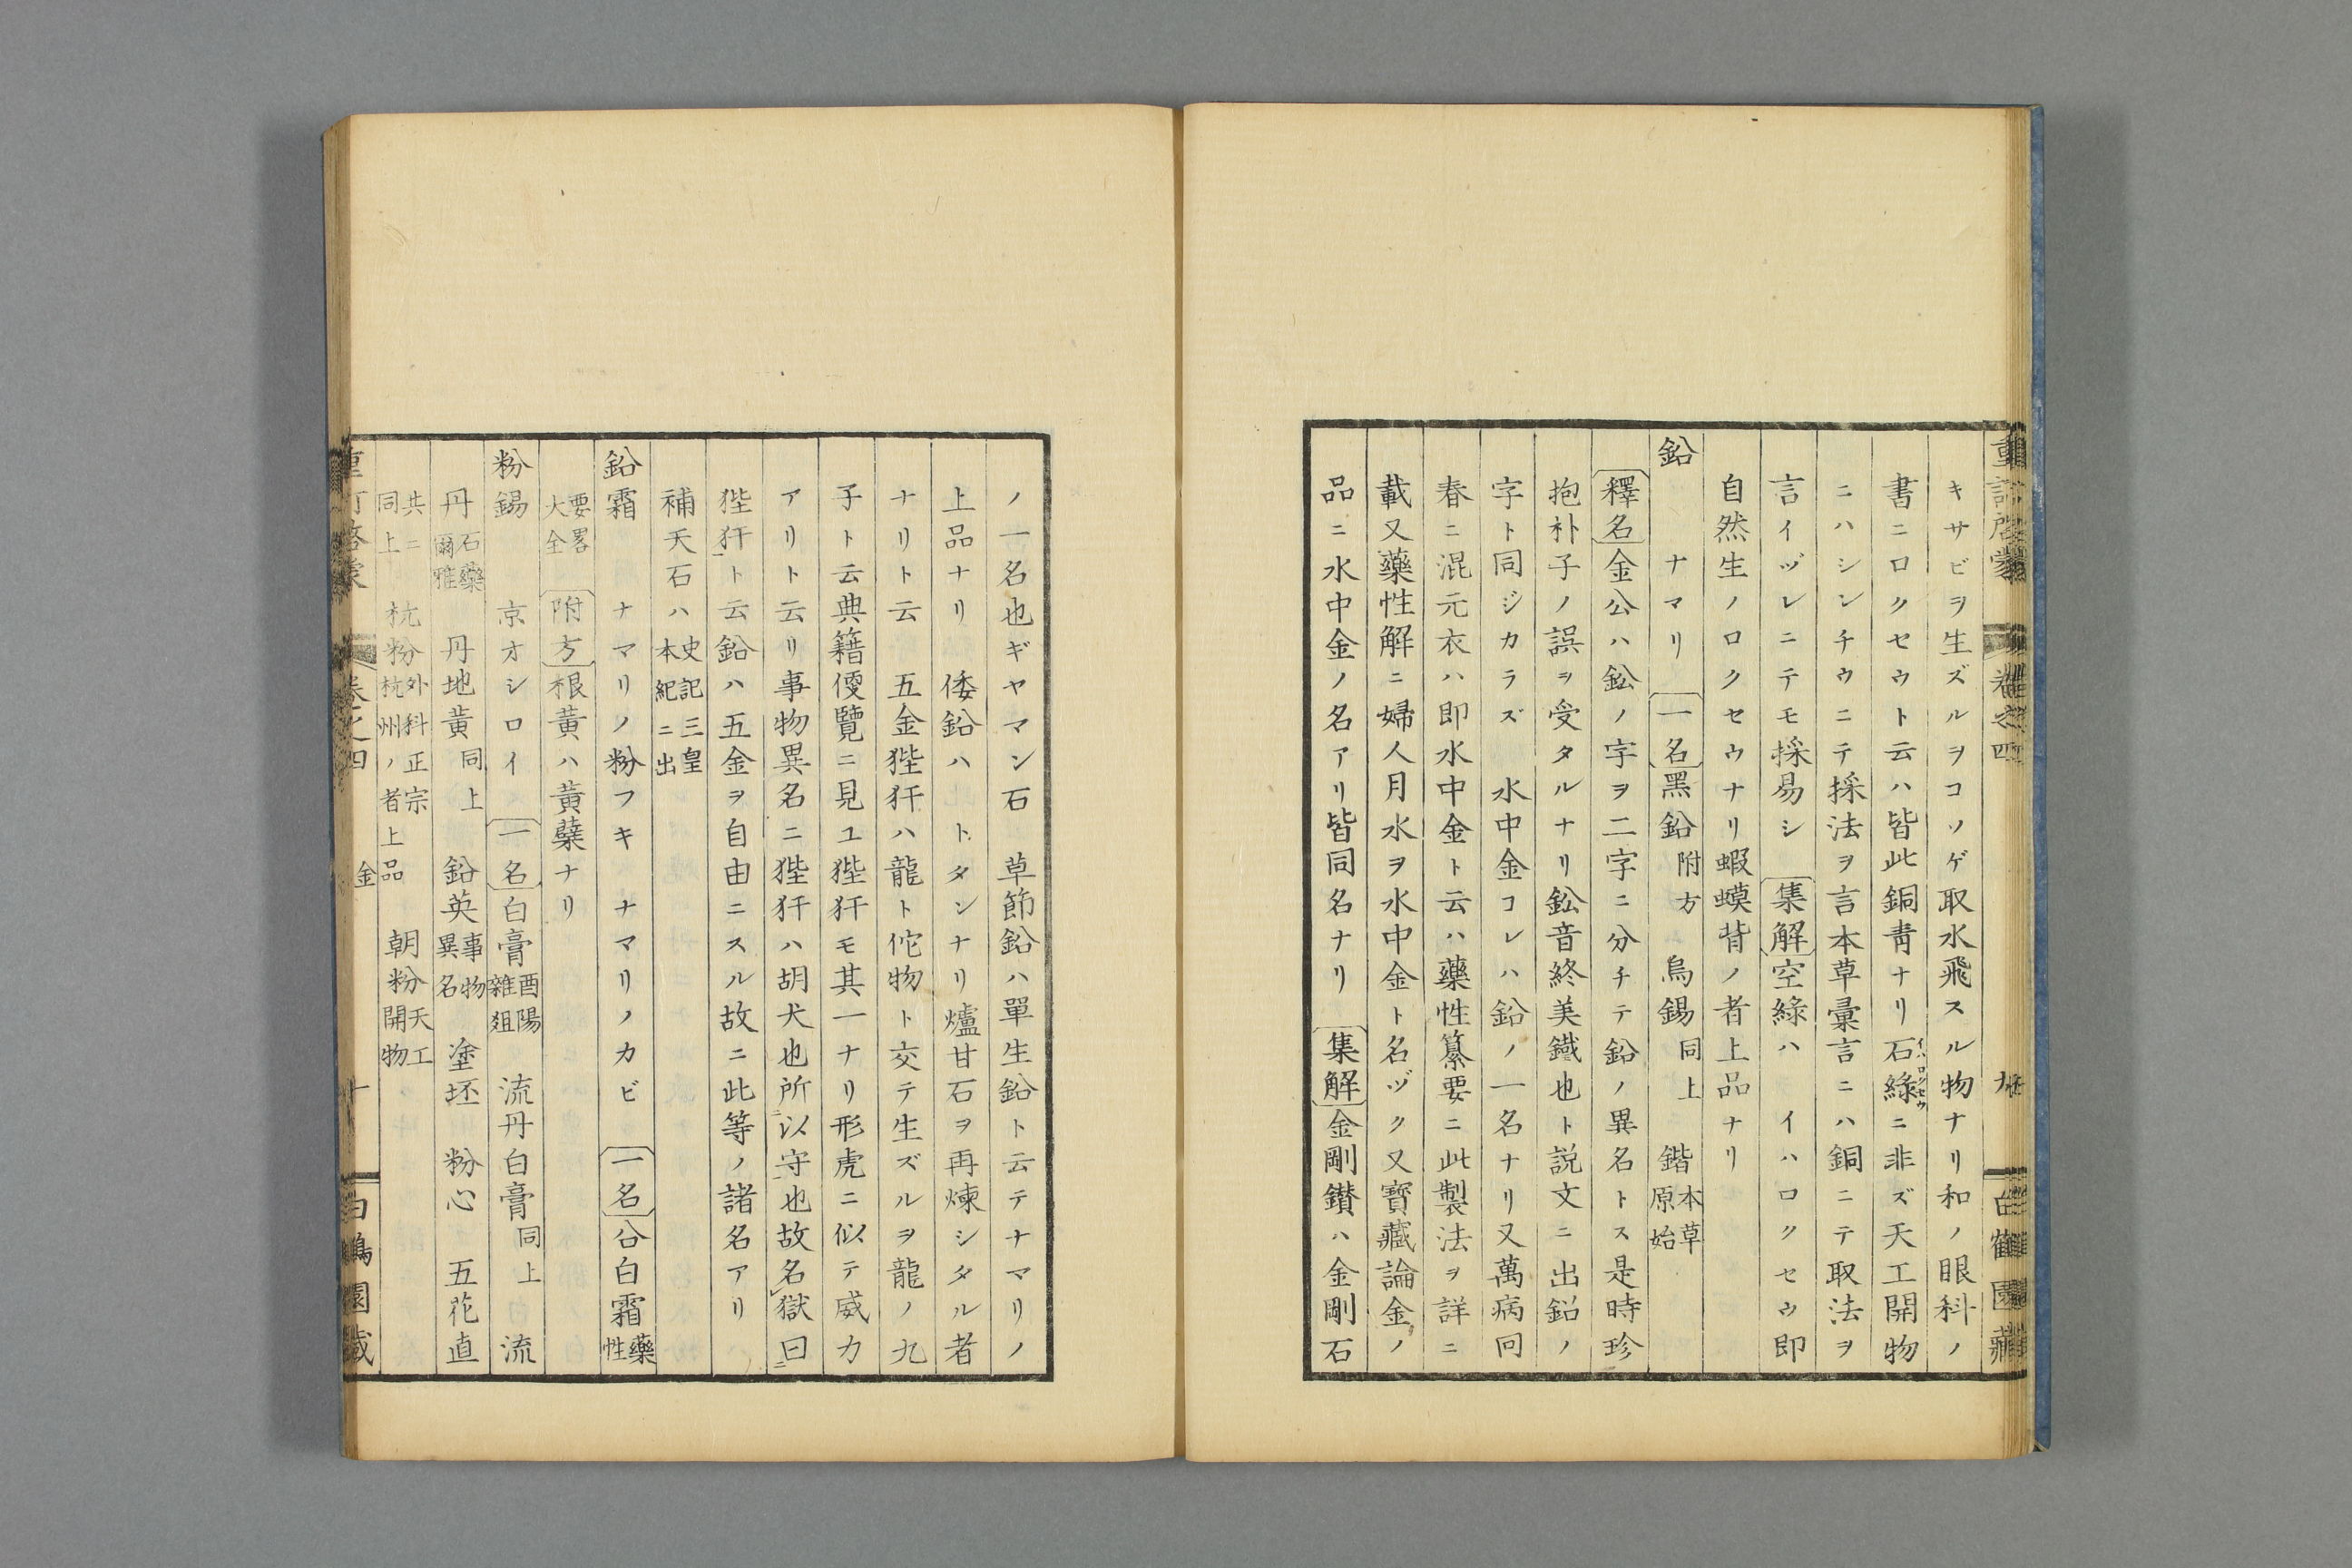 重訂啓蒙 卷之四 九 白鶴園藏
キサビヲ生ズルヲコソゲ取水飛スル物ナリ和ノ眼科ノ
書ニロクセウト云ハ皆此銅青ナリ石緑イハロクセウニ非ズ天工開物
ニハシンチウニテ採法ヲ言本草彙言ニハ銅ニテ取法ヲ
言イヅレニテモ採易シ 集解 空緑ハ イハロクセウ即
自然生ノロクセウナリ蝦蟆背ノ者上品ナリ
鉛 ナマリ 一名 黑鉛附方 烏錫同上 鍇本草原始
釋名 金公ハ鈆ノ字ヲ二字ニ分チテ鉛ノ異名トス是時珍
抱朴子ノ誤ヲ受タルナリ鈆音終美鐵也ト説文ニ出鉛ノ
字ト同ジカラズ 水中金コレハ鉛ノ一名ナリ又萬病回
春ニ混元衣ハ即水中金ト云ハ藥性纂要ニ此製法ヲ詳ニ
載又藥性解ニ婦人月水ヲ水中金ト名ヅク又寳藏論金ノ
品ニ水中金ノ名アリ皆同名ナリ 集解 金剛鑚ハ金剛石
ノ一名也ギヤマン石 草節鉛ハ單生鉛ト云テナマリノ
上品ナリ 倭鉛ハ トタンナリ爐甘石ヲ再煉シタル者
ナリト云 五金狴犴ハ龍ト佗物ト交テ生ズルヲ龍ノ九
子ト云典籍便覽ニ見ユ狴犴モ其一ナリ形虎ニ似テ威力
アリト云リ事物異名ニ狴犴ハ胡犬也所以守也故名獄曰
狴犴ト云鉛ハ五金ヲ自由ニスル故ニ此等ノ諸名アリ
補天石ハ史記三皇本紀ニ出
鉛霜 ナマリノ粉フキ ナマリノカビ 一名 合白霜藥性
要畧大全 附方 根黄ハ黄蘖ナリ
粉錫 京オシロイ 一名 白膏酉陽雜俎 流丹白膏同上 流
丹石藥爾雅 丹地黄同上 鉛英事物異名 塗坯 粉心 五花直
共ニ同上 杭粉外科正宗杭州ノ者上品 朝粉天工開物
重訂啓蒙 卷之四 金 十 白鶴園藏